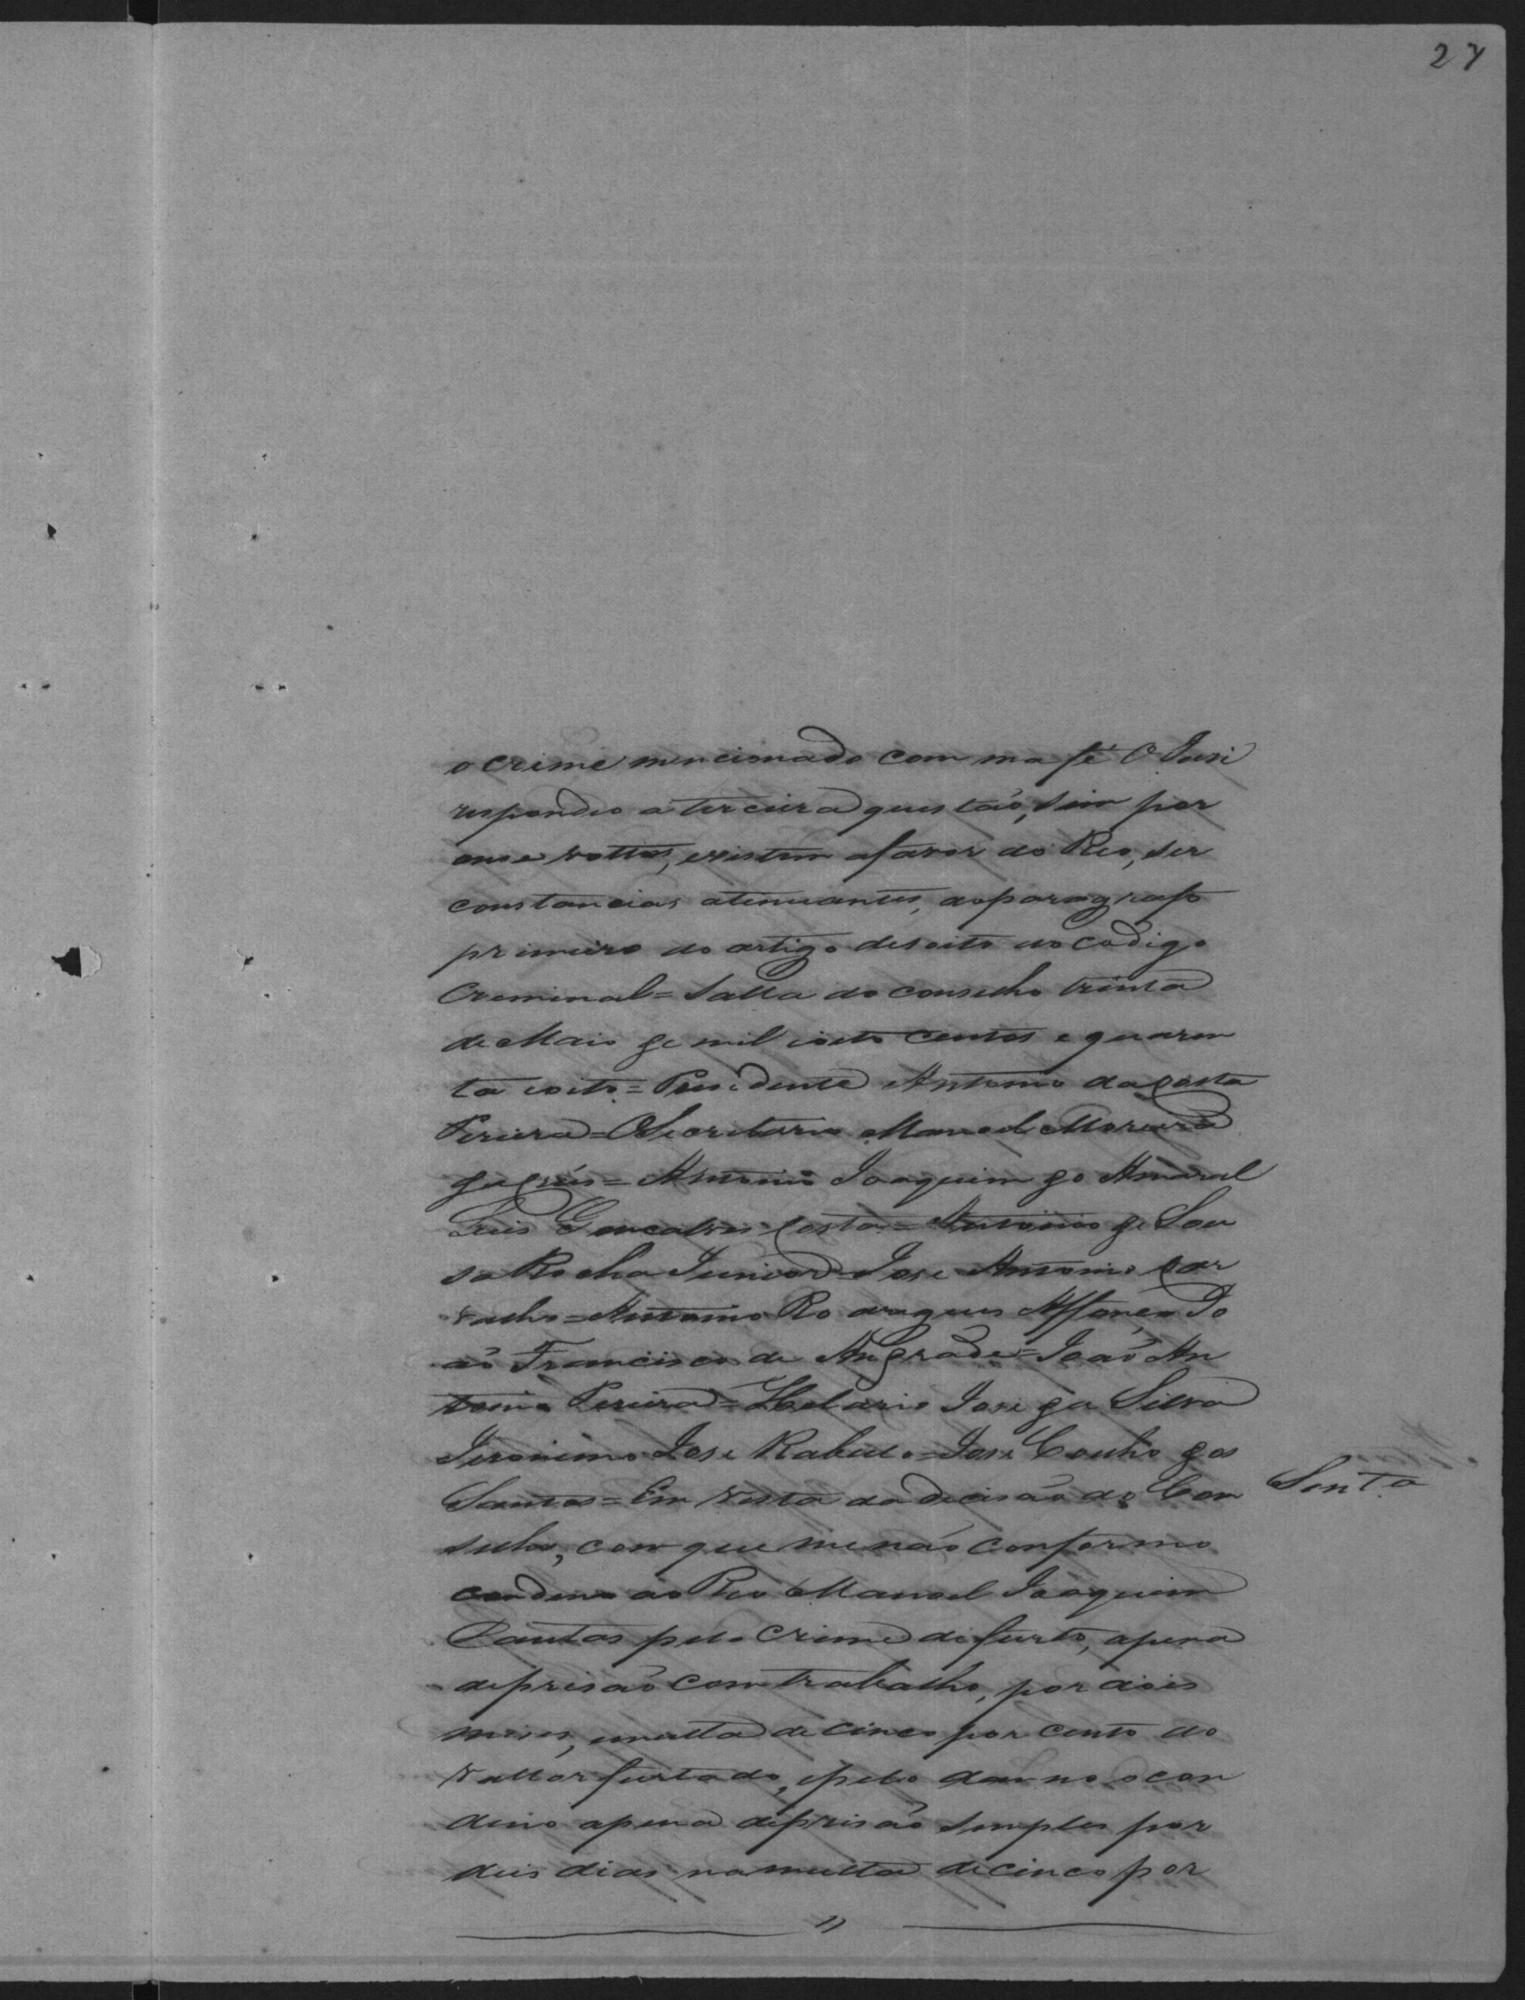 27
o crime mencionado com ma fé O Juri
respondeo a terceira questão, sim por
onse vottos, existem afavor do Reo, ser
constancias atenuantes, doparagrafo
primeiro do artigo desoito do codigo
Creminal = Salla do conselho trinta
de Maio de mil oito centos e quaren
ta ioito = Presidente Antonio da Costa
Pereira = O Secretario Manoel Moreira
Antonio Joaquim do Amaral
Luis Goncalves Costa = Antonio de Sou
sa Rocha Junior = Jose Antonio Car
valho = Antonio Rodrigues Affonço Jo
ão Francisco de Andrade = João An
tonio Pereira = Helario Jose da Silva
Jeronimo Jose Rabello = José Coelho dos
Santos = Em vista da decisão do Con
Sent.a
selho, com que me não conformo
condeno ao Reo Manoel Joaquim
Dantas pelo crime defurto, apena
deprisão comtrabalho, por dois
meses, emulta de cinco por cento do
vallor furtado, epelo damno o con
deno apena deprisão simples por
deis dias namulta decinco por